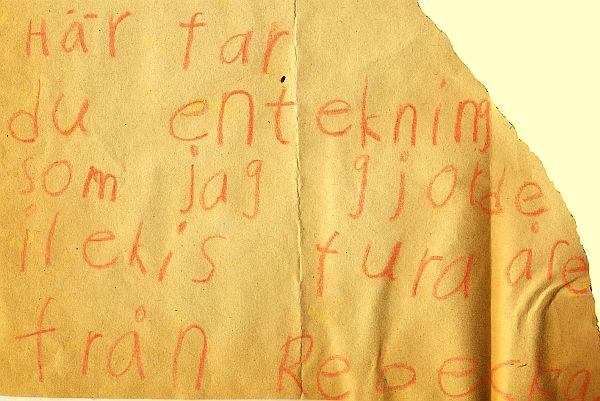 Här far
du entekning
som jag gjorde
ilekis fura åre
från Rebecka